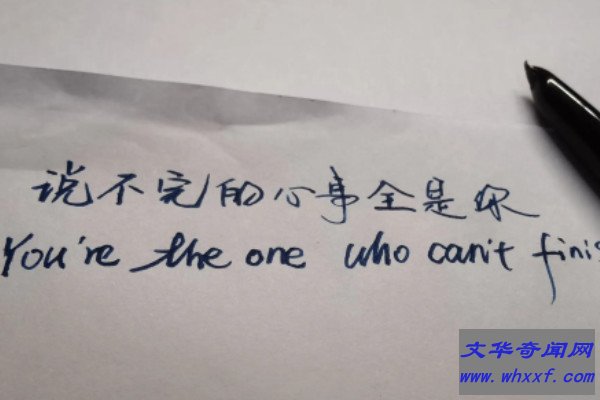 说不完的心事全是你
You're the one who can't finis
文华奇闻网
www.whxxf.com